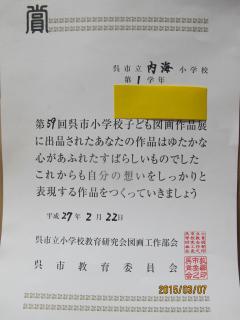 賞
呉市立内海小学校
第1学年
第59回呉市小学校子ども図画作品展
に出品されたあなたの作品はゆたかな
心があふれたすばらしいものでした
これからも自分の想いをしっかりと
表現する作品をつくっていきましょう
平成27年2月22日
呉市立小学校教育研究会図画工作部会
呉市教育委員会
2015/03/07